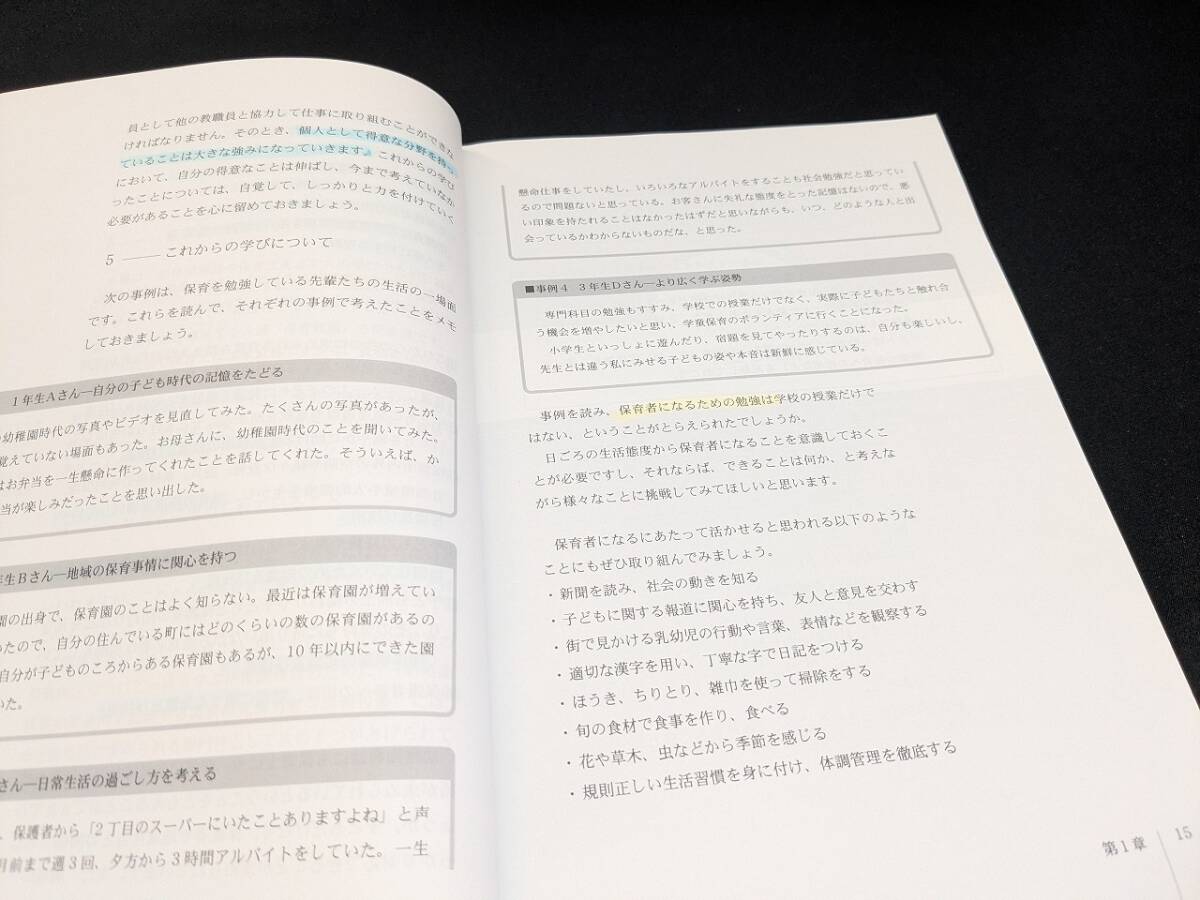 員として他の教職員と協力して仕事に取り組むことができな
ければなりません。そのとき、個人として得意な分野を持っ
ていることは大きな強みになっていきます。これからの学び
において、自分の得意なことは伸ばし、今まで考えていなか
ったことについては、自覚して、しっかりと力を付けていく
必要があることを心に留めておきましょう。
5 ――これからの学びについて
次の事例は、保育を勉強している先輩たちの生活の一場面
です。これらを読んで、それぞれの事例で考えたことをメモ
しておきましょう。
1年生Aさん―自分の子ども時代の記憶をたどる
幼稚園時代の写真やビデオを見直してみた。たくさんの写真があったが、
覚えていない場面もあった。お母さんに、幼稚園時代のことを聞いてみた。
はお弁当を一生懸命に作ってくれたことを話してくれた。そういえば、か
当が楽しみだったことを思い出した。
年生Bさん―地域の保育事情に関心を持つ
園の出身で、保育園のことはよく知らない。最近は保育園が増えてい
ったので、自分の住んでいる町にはどのくらいの数の保育園があるの
自分が子どものころからある保育園もあるが、10年以内にできた園
いた。
さん―日常生活の過ごし方を考える
、保護者から「2丁目のスーパーにいたことありますよね」と声
月前まで週3回、夕方から3時間アルバイトをしていた。一生
懸命仕事をしていたし、いろいろなアルバイトをすることも社会勉強だと思ってい
るので問題ないと思っている。お客さんに失礼な態度をとった記憶はないので、悪
い印象を持たれることはなかったはずだと思いながらも、いつ、どのような人と出
会っているかわからないものだな、と思った。
■事例4 3年生Dさん―より広く学ぶ姿勢
専門科目の勉強もすすみ、学校での授業だけでなく、実際に子どもたちと触れ合
う機会を増やしたいと思い、学童保育のボランティアに行くことになった。
小学生といっしょに遊んだり、宿題を見てやったりするのは、自分も楽しいし、
先生とは違う私にみせる子どもの姿や本音は新鮮に感じている。
事例を読み、保育者になるための勉強は学校の授業だけで
はない、ということがとらえられたでしょうか。
日ごろの生活態度から保育者になることを意識しておくこ
とが必要ですし、それならば、できることは何か、と考えな
がら様々なことに挑戦してみてほしいと思います。
保育者になるにあたって活かせると思われる以下のような
ことにもぜひ取り組んでみましょう。
・新聞を読み、社会の動きを知る
・子どもに関する報道に関心を持ち、友人と意見を交わす
・街で見かける乳幼児の行動や言葉、表情などを観察する
・適切な漢字を用い、丁寧な字で日記をつける
・ほうき、ちりとり、雑巾を使って掃除をする
・旬の食材で食事を作り、食べる
・花や草木、虫などから季節を感じる
・規則正しい生活習慣を身に付け、体調管理を徹底する
第1章 15